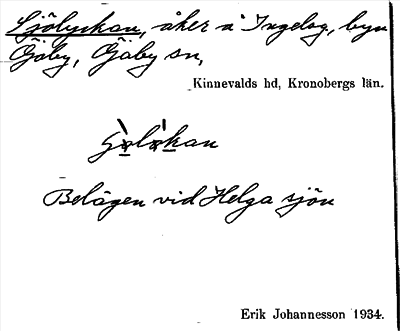 Sjölyckan, åker å Ingelög, byn
Gåby, Gåby sn,
Kinnevalds hd, Kronobergs län.
Belägen vid Helga sjön
Erik Johannesson 1934.